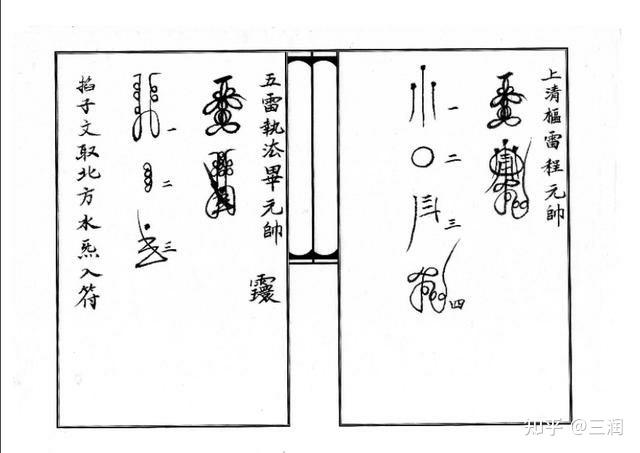 上清樞雷程元帥
一
二
三
四
五雷執法畢元帥
一
二
三
掐子文取北方水炁入符
知乎 @三润